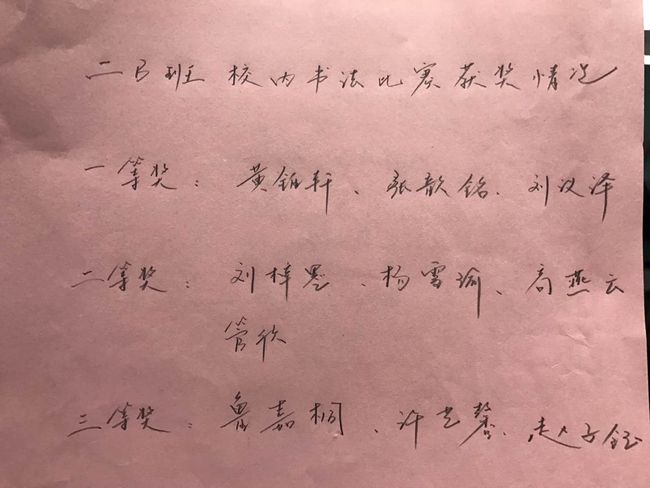 二B班 校内书法比赛获奖情况
一等奖：黄铂轩、张歆铭、刘汉泽
二等奖：刘梓墨、杨雪瑜、高燕云
管欣
三等奖：鲁嘉桐、许艺馨、赵子钰